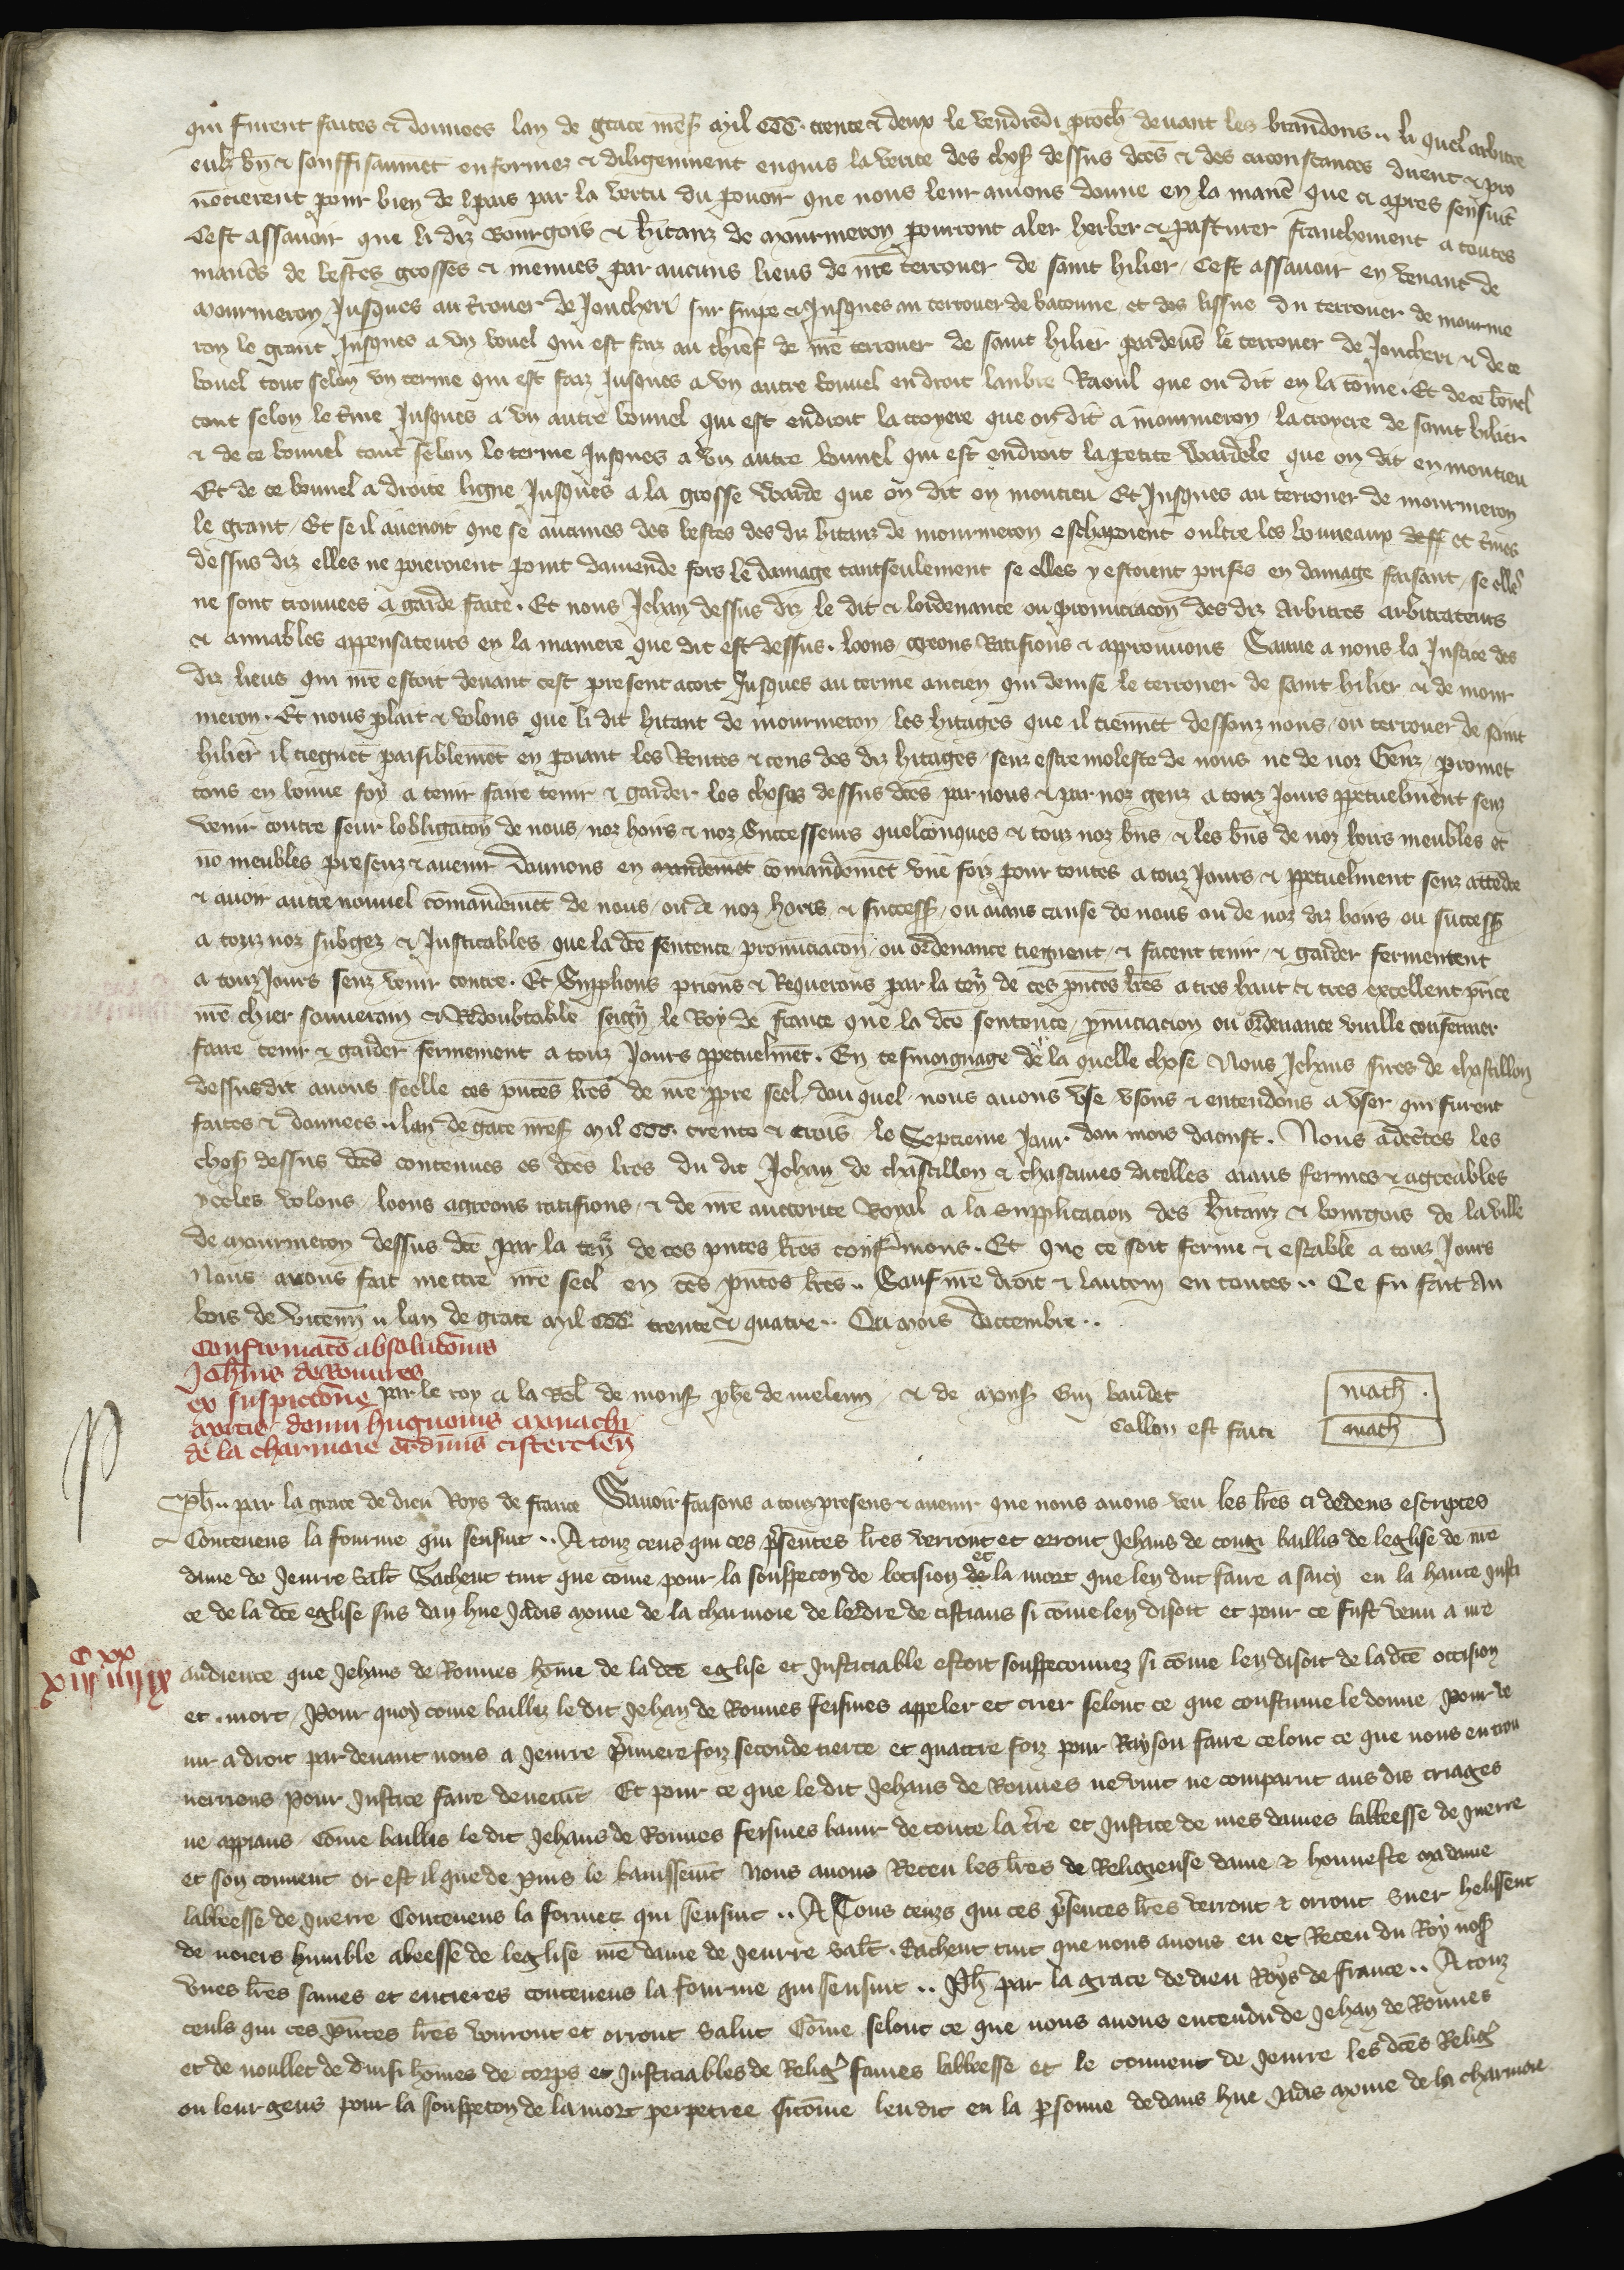 qui furent faites & donnees lan de grace mess mil ccc. trente & deux le vendredi proch devant les brandons .. li quel arbitre
eulz bn & souffisaumet enformez & diligeument enquis la verite des chos dessus dces & des circonstances dirent & pro
noncierent pour bien de pais par la vertu du povoir que nous leur aviens donne en la manie que ci apres sensuit
Cest assavoir que li diz Bourgois & hitanz de mourmeron pourront aler herber & pasturer franchement a toutes
manies de bestes grosses & menues par aucuns lieus de nre terrouer de saint hilier / Cest assavoir en venant de
Mourmeron Jusques au trouer de Joncheri sur suipe & Jusques au terrouer de baconne et des lissue du terrouer de mourme
ron le grant Jusques a un bonel qui est faiz au chief de nre terrouer de saint hilier pardevs le terrouer de Joncheri & de ce
bonel tout selon un terme qui est faiz Jusques a un autre bonnel endroit laubre Raoul que on dit en la come . Et de ce bonel
tout selon le tme Jusques a un autre bonnel qui est endroit la croyere que on dit a mourmeron la croyere de saint hilier
& de ce bonnel tout selon le terme Jusques a un autre bonnel qui est endroit la petite Wardele que on dit en moncieu
Et de ce bonnel a droite ligne Jusques a la grosse Warde que on dit en moncieu Et Jusques au terrouer de mourmeron
le grant / Et se il avenoit que se aucunes des bestes des diz hitanz de mourmeron eschapoient oultre les bonneaux deff et tmes
dessus diz elles ne poieroient point damende fors le damage tantseulement se elles y estoient prises en damage faisant / se elles
ne sont trouvees a garde faite . Et nous Jehan dessus diz le dit & lordenance ou pronunciacon des diz Arbitres arbitrateurs
& amiables appensateurs en la maniere que dit est dessus . loons greons Ratifions & approuvons Sauve a nous la Justice des
diz lieus qui nre estoit devant cest present acort Jusques au terme ancien qui devise le terrouer de saint hilier & de mour
meron . Et nous plait & volons que li dit hitant de mourmeron les hitages que il tiennet dessouz nous / ou terrouer de saint
hilier il tiegnet paisiblemet en paiant les Rentes & cens des diz hitages senz estre moleste de nous ne de noz Genz / promet
tons en bonne foy a tenir faire tenir & garder les choses dessus dces par nous & par noz genz a touz Jours ppetuelment senz
venir contre seur lobligacon de nous / noz hoirs & noz Successeurs quelconques & touz noz bns & les bns de noz hoirs meubles et
no meubles presenz & avenir Donnons en mandemet comandemet une foiz pour toutes a touz Jours & ppetuelment senz attedre
& avoir autre nouvel comandemet de nous / ou de noz hoirs & success / ou aians cause de nous ou de noz diz hoirs ou success
a touz noz subgez & Justicables que la dce sentence pronunciacon / ou ordenance tiegnent / & facent tenir / & garder fermentent
a touz Jours senz venir contre . Et Supplions prions & Requerons par la ten de ces pntes lres a tres haut & tres excellent prince
nre chier souverain & Redoubtable seign le Roy de france que la dce sentence / pnunciacion ou ordenance vuille confermer
faire tenir & garder fermement a touz Jours ppetuelmet . En tesmoignage de la quelle chose Nous Jehans sires de chastillon
dessusdit avons seelle ces pntes lres de nre ppre seel / dou quel nous avons use usons & entendons a user qui furent
faites & donnees .. lan de grace mess mil ccc. trente & trois le Septieme Jour dou mois daoust . Nous adcetes les
chos dessus dces contenues es dces lres du dit Jehan de chastillon & chascunes dicelles aians fermes & agreables
yceles volons / loons agreons ratifions / & de nre auctorite Royal a la supplicacion des hitanz & bourgois de la ville
de mourmeron dessus dce par la ten de ces pntes lres confermons . Et que ce soit ferme & estable a touz Jours
Nous avons fait mettre nre seel en ces pntes lres .. Sauf nre droit & lautrui en toutes .. Ce fu fait Au
bois de vicenn .. lan de grace Mil ccc trente & quatre .. Ou mois Decembre ..
Confirmato absolutonis
Johnis de Ronnres
ex suspictone
mortis domini hugnonis monachi
de la charmoie ordinis cistercien
par le roy a la Rel de mons phe de meleun / & de mons Guy baudet
math .
Collon est faite
math
Ph .. par la grace de dieu Roys de france Savoir faisons a touz presens & avenir que nous avons veu les lres ci dedens escriptes
Contenens la fourme qui sensuit .. A touz ceus qui ces presentes lres verront et orront Jehans de congi baillis de leglise de nre
dame de Jeurre salt Sachent tuit que come pour la souspecon de locision et la mort que len dut faire a sarcy en la haute Justi
ce de la dce eglise sus dan hue Jadis moine de la charmoie de lordre de cistiaus si come len disoit et pour ce fust venu a nre
C xx
xiij iiij ix
audience que Jehans de Ronnes home de la dce eglise et Justiciable estoit souspeconnez si come len disoit de la dce occision
et mort / Pour quoy come bailliz le dit Jehan de Ronnes feismes appeler et crier selonc ce que coustume le donne pour ve
nir a droit par devant nous a Jeurre primere foiz seconde tierce et quattre foiz pour Rayson faire celonc ce que nous en trou
verrions pour Justice faire devemt Et pour ce que le dit Jehans de Ronnes ne vint ne comparut aus dis criages
ne appiaus Come baillis le dit Jehans de Ronnes feismes banir de toute la tre et Justice de mes dames labbeesse de Jverre
et son couvent or est il que de puis le banissemt Nous avons Receu les lres de Religieuse dame & honneste ma dame
labbeesse de Jverre Contenens la fourme qui sensuit .. A Tous ceuzs qui ces presences lres verront & orront Suer helissent
de noiers humble abeesse de leglise nre dame de Jeurre salt . Sachent tuit que nous avons eu et Receu du Roy nos
unes lres saines et entieres contenens la fourme qui sensuit .. Ph par la grace de dieu Roys de france .. A touz
ceuls qui ces pntes lres verront et orront salut Come selonc ce que nous avons entendu de Jehan de Ronnes
et de noullet de Duisi homes de corps et Justiciables de Relig fames labbeesse et le couvent de Jeurre les dces Relig
ou leur gens pour la souspecon de la mort perpetree sicome len dit en la persone de dans hue Jadis moine de la charmoie